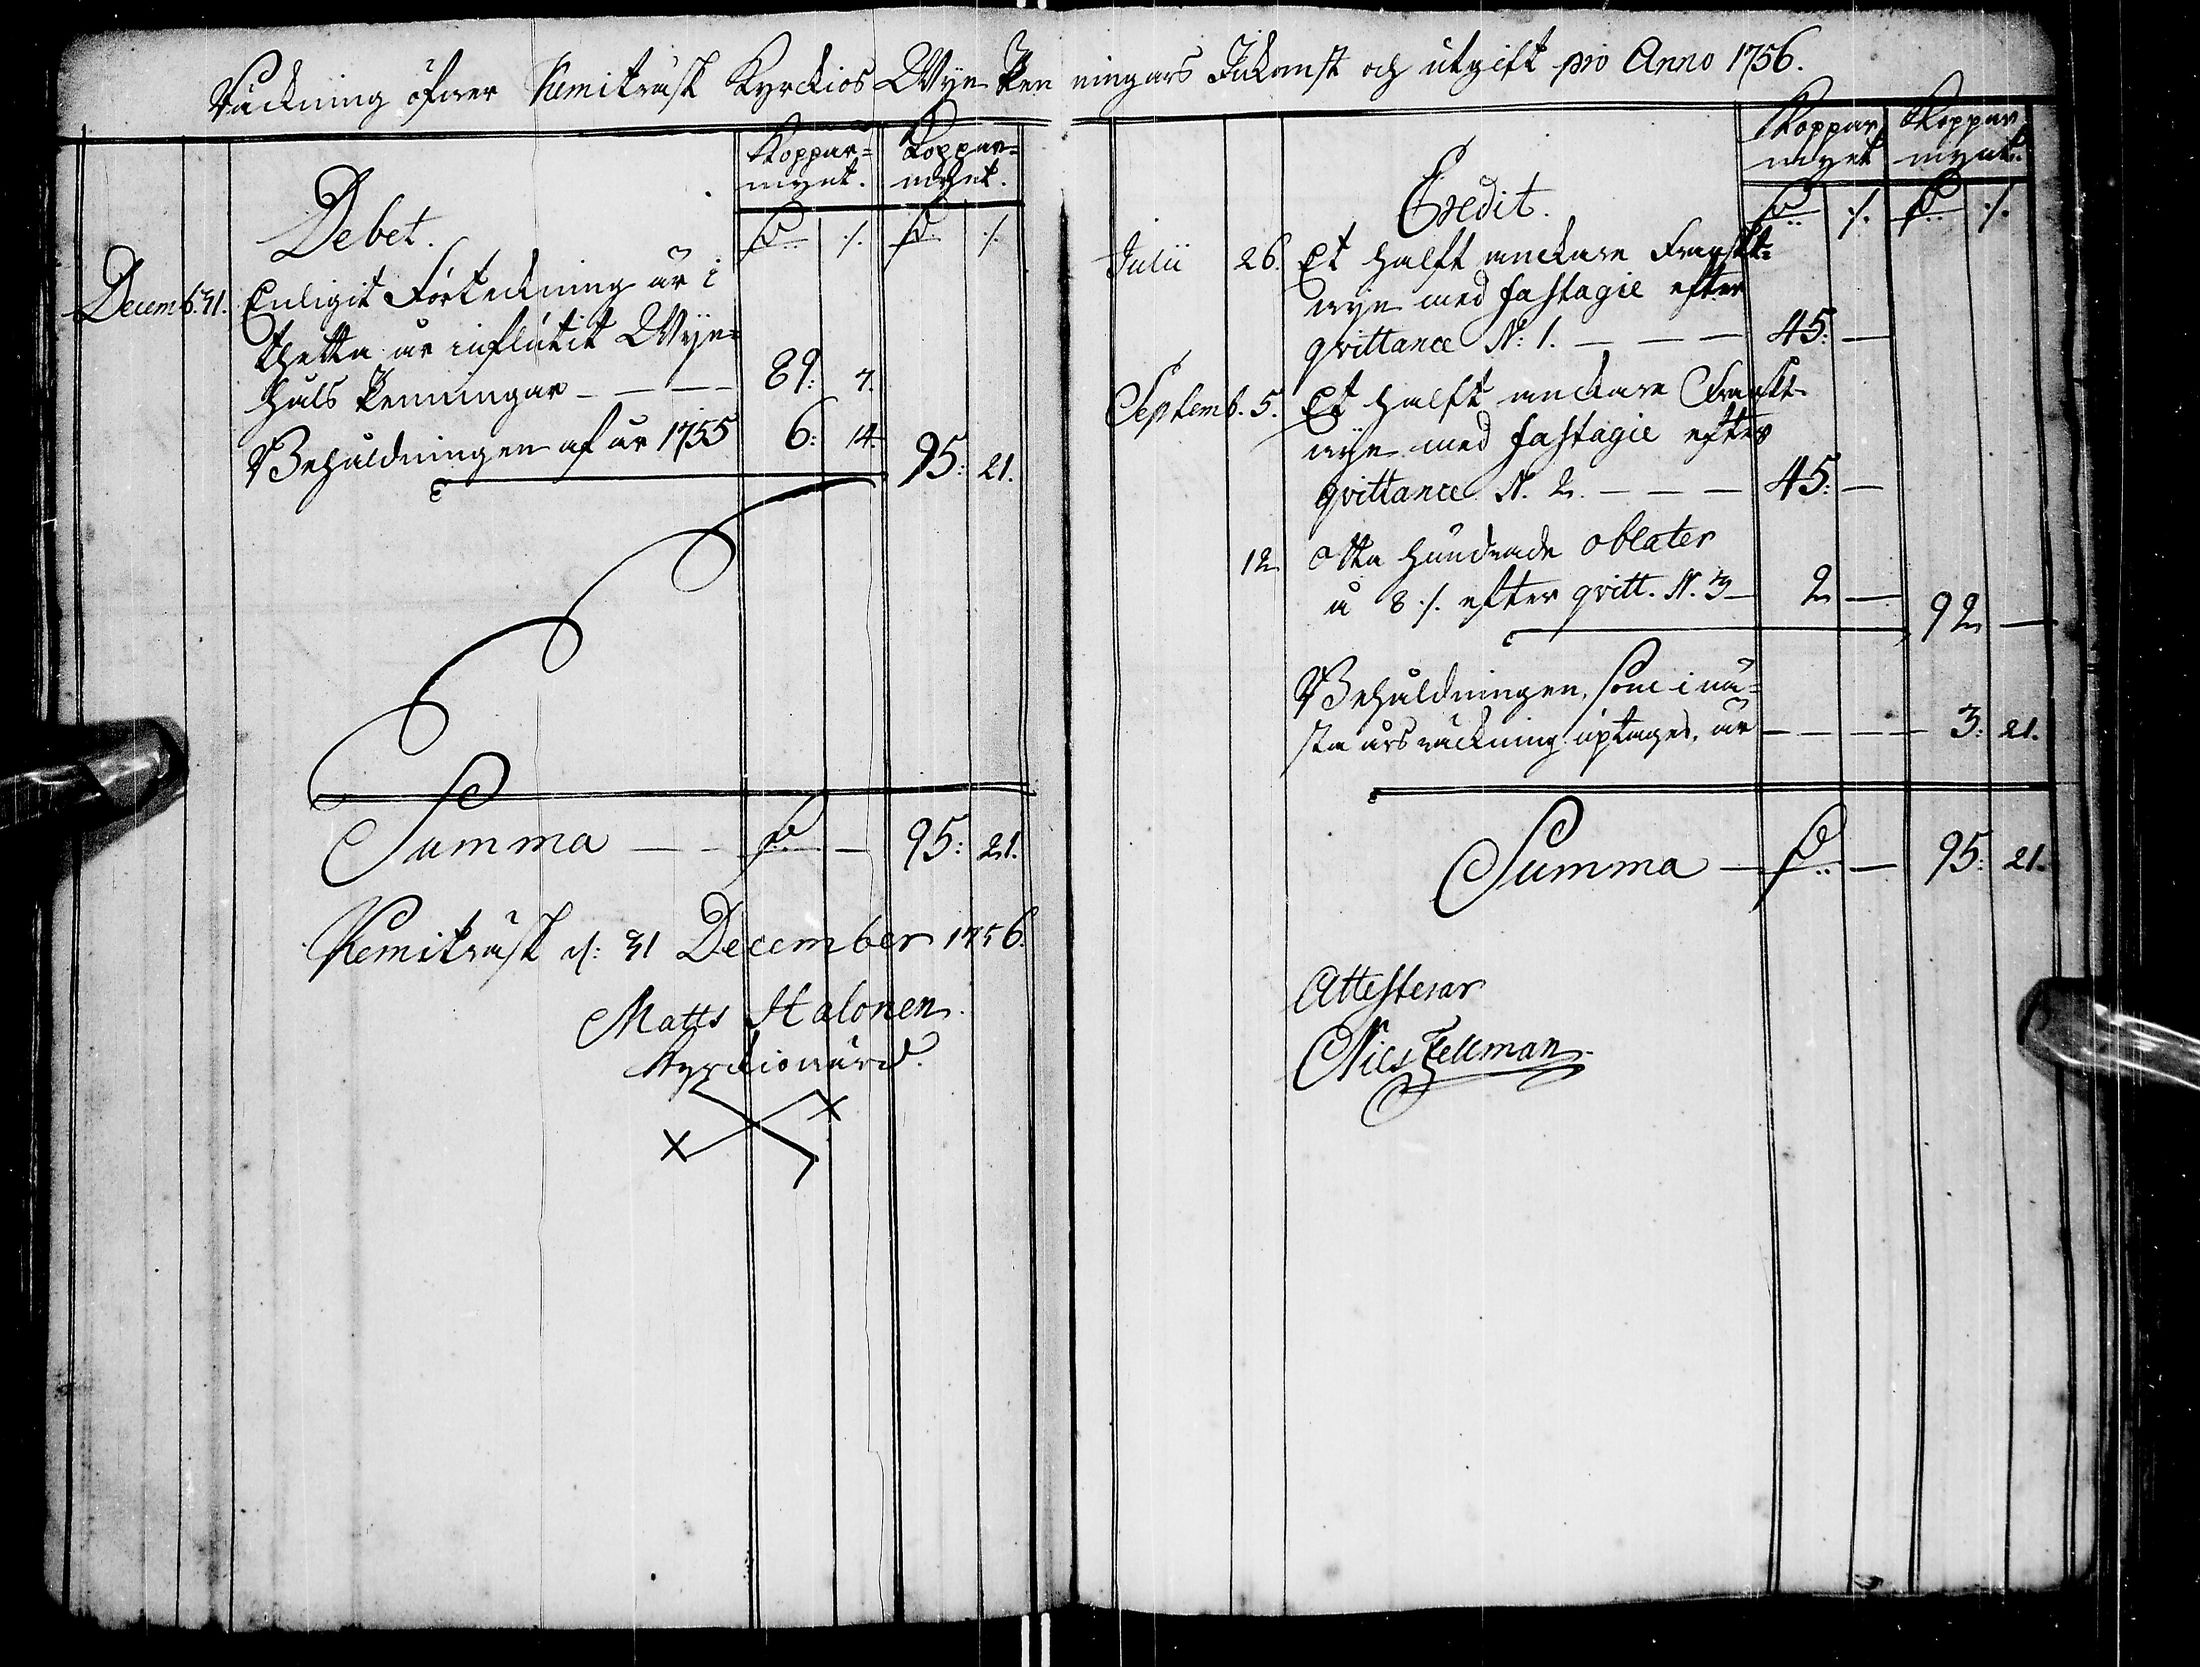 Räckning öfwer Kemiträsk Kyrckios Wijn Pen ningars Inkomst och utgift pro Anno 1756.
Koppar=
mynt.
Koppar=
mynt.
Debet.
Decemb. 31. Enligit Förteckning är i
thetta år influtit Wijn=
håls Penningar - - - 89: 7.
Behåldningen af år 1755 6: 14 95: 21.
Summa - - - 95: 21.
Kemiträsk d: 31 December 1756.
Matts Halonen.
Kyrckiowärd.
Koppar
mynt
Koppar
mynt.
Credit.
Julii 26. Et halft anckare Franskt=
wijn med fastagie efter
qvittance N: 1. - - - 45: -
Septemb. 5. Et halft anckare Franskt=
wijn med fastagie efter
qvittance N. 2. - - - 45: -
12. Otta hundrade oblater
a 8 ./. efter qvitt. N. 3 - 2 - 92 -
Behåldningen, som i nä=
sta års räckning uptages, är - - - - 3: 21.
Summa - - 95: 21.
Attesterar
Nils Fellman